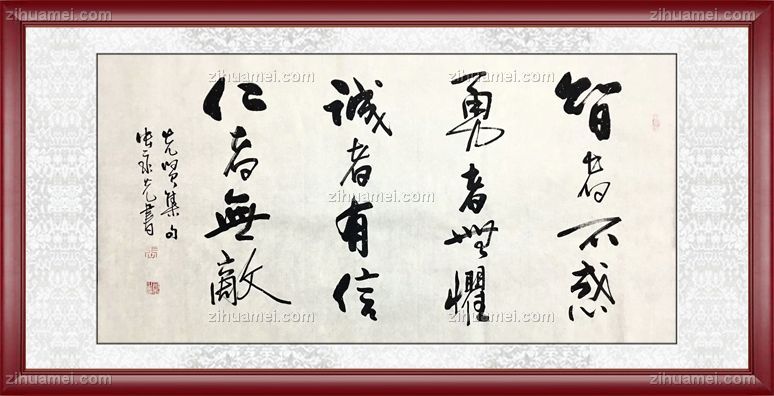 zihuamei.com zihuamei.com
zihuamei.com zihuamei.com
智者不惑
勇者無懼
誠者有信
仁者無敵
先賢集句
書
zihuamei.com
zihuamei.com zihuamei.com
zihuamei.com zihuamei.com